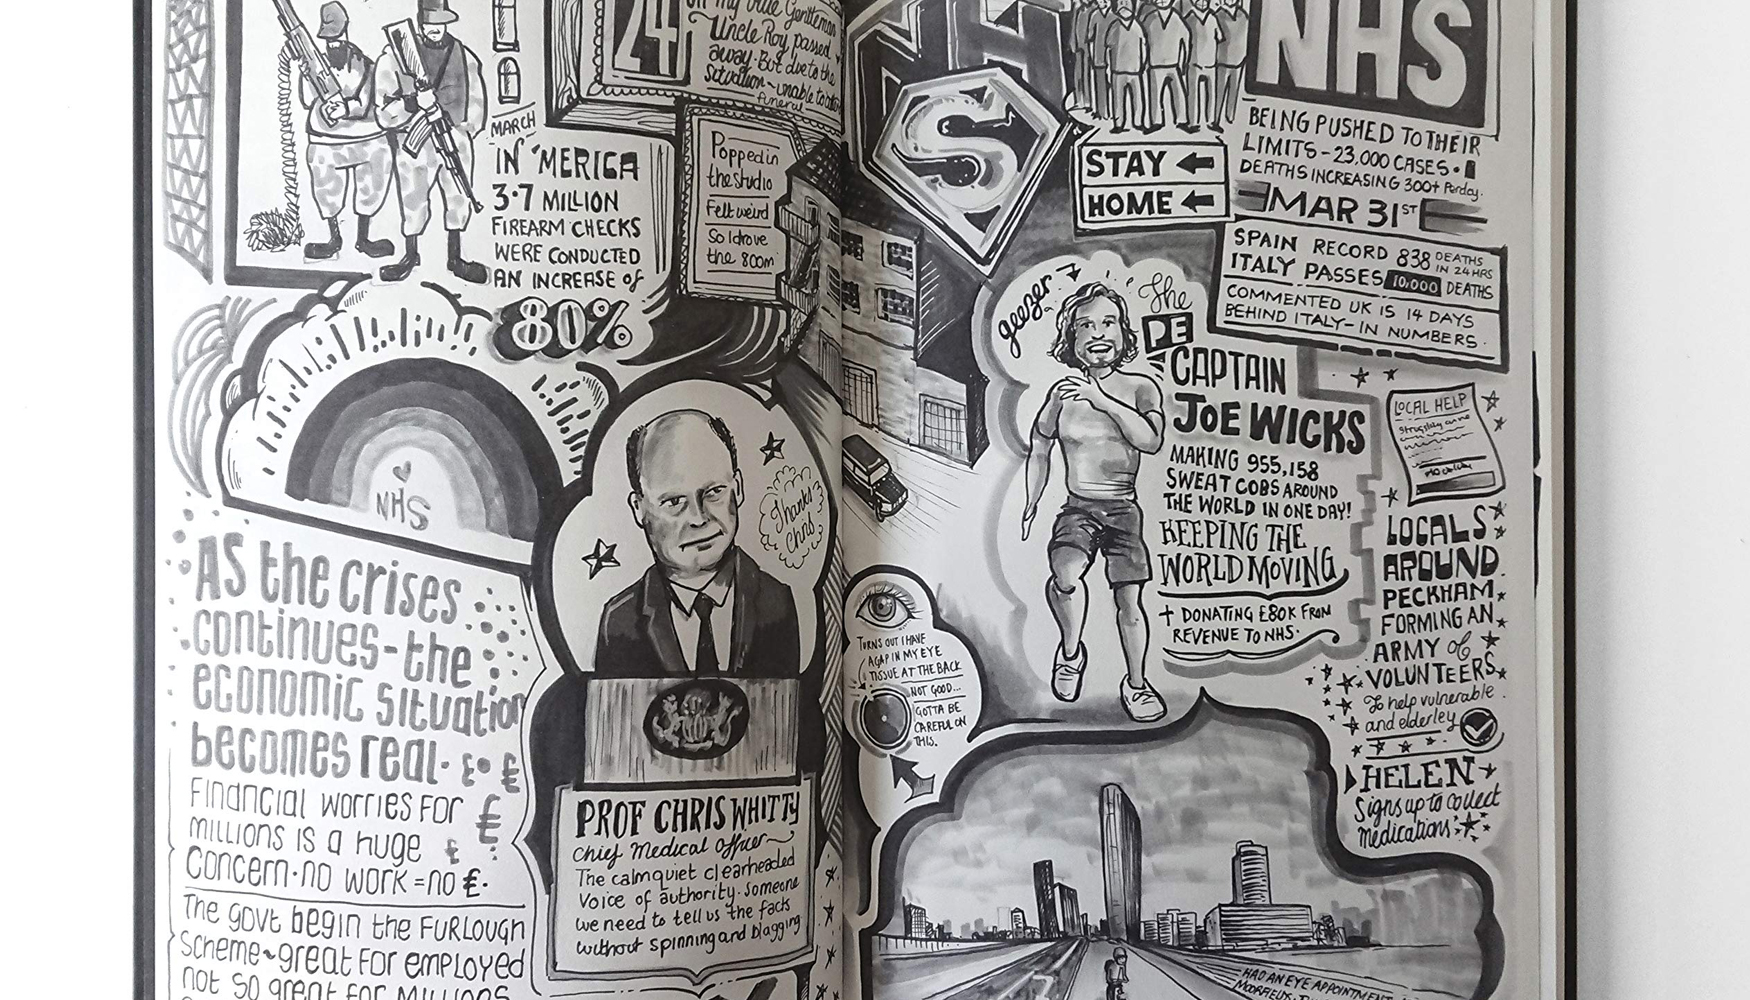 24
on my wife Gentleman
Uncle Roy passed
away. But due to the
situation - unable to attend
funeral
MARCH
IN 'MERICA
3.7 MILLION
FIREARM CHECKS
WERE CONDUCTED
AN INCREASE of
80%
Popped in
the studio
Felt weird
So I drove
the 800m
NHS
AS the crises
continues - the
economic situation
becomes real.
Financial worries for
millions is a huge
concern. no work = no £.
The govt begin the Furlough
scheme ~ great for employed
not so great for millions
Thanks
Chris
PROF CHRIS WHITTY
Chief Medical officer
The calm quiet clearheaded
Voice of authority. Someone
we need to tell us the facts
without spinning and blagging
NHS
STAY
HOME
NHS
BEING PUSHED TO THEIR
LIMITS - 23,000 CASES.
DEATHS INCREASING 300+ Perday.
MAR 31ST
SPAIN RECORD 838 DEATHS IN 24HRS
ITALY PASSES 10,000 DEATHS
COMMENTED UK IS 14 DAYS
BEHIND ITALY - IN NUMBERS.
geezer
The
PE
CAPTAIN
JOE WICKS
MAKING 955,158
SWEAT COBS AROUND
THE WORLD IN ONE DAY!
KEEPING THE
WORLD MOVING
+ DONATING £80K FROM
REVENUE TO NHS.
LOCAL HELP
LOCALS
AROUND
PECKHAM
FORMING AN
ARMY of
VOLUNTEERS
To help vulnerable
and elderley
HELEN
Signs up to collect
medications
TURNS OUT I HAVE
A GAP IN MY EYE
TISSUE AT THE BACK
NOT GOOD...
GOTTA BE
CAREFUL ON
THIS.
HAD AN EYE APPOINTMENT
MOORFIELDS.